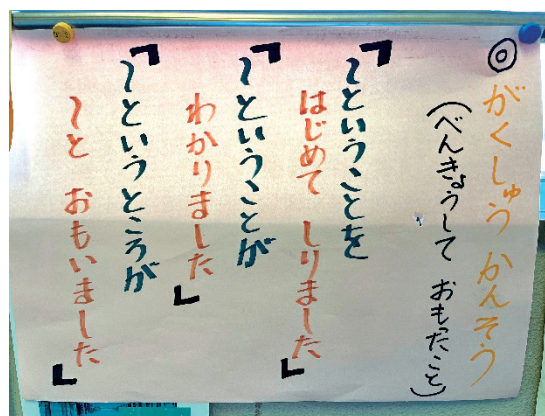 ◎がくしゅう かんそう
(べんきょうして おもったこと)
「〜ということを
はじめて しりました」
「〜ということが
わかりました」
「〜というところが
〜と おもいました」